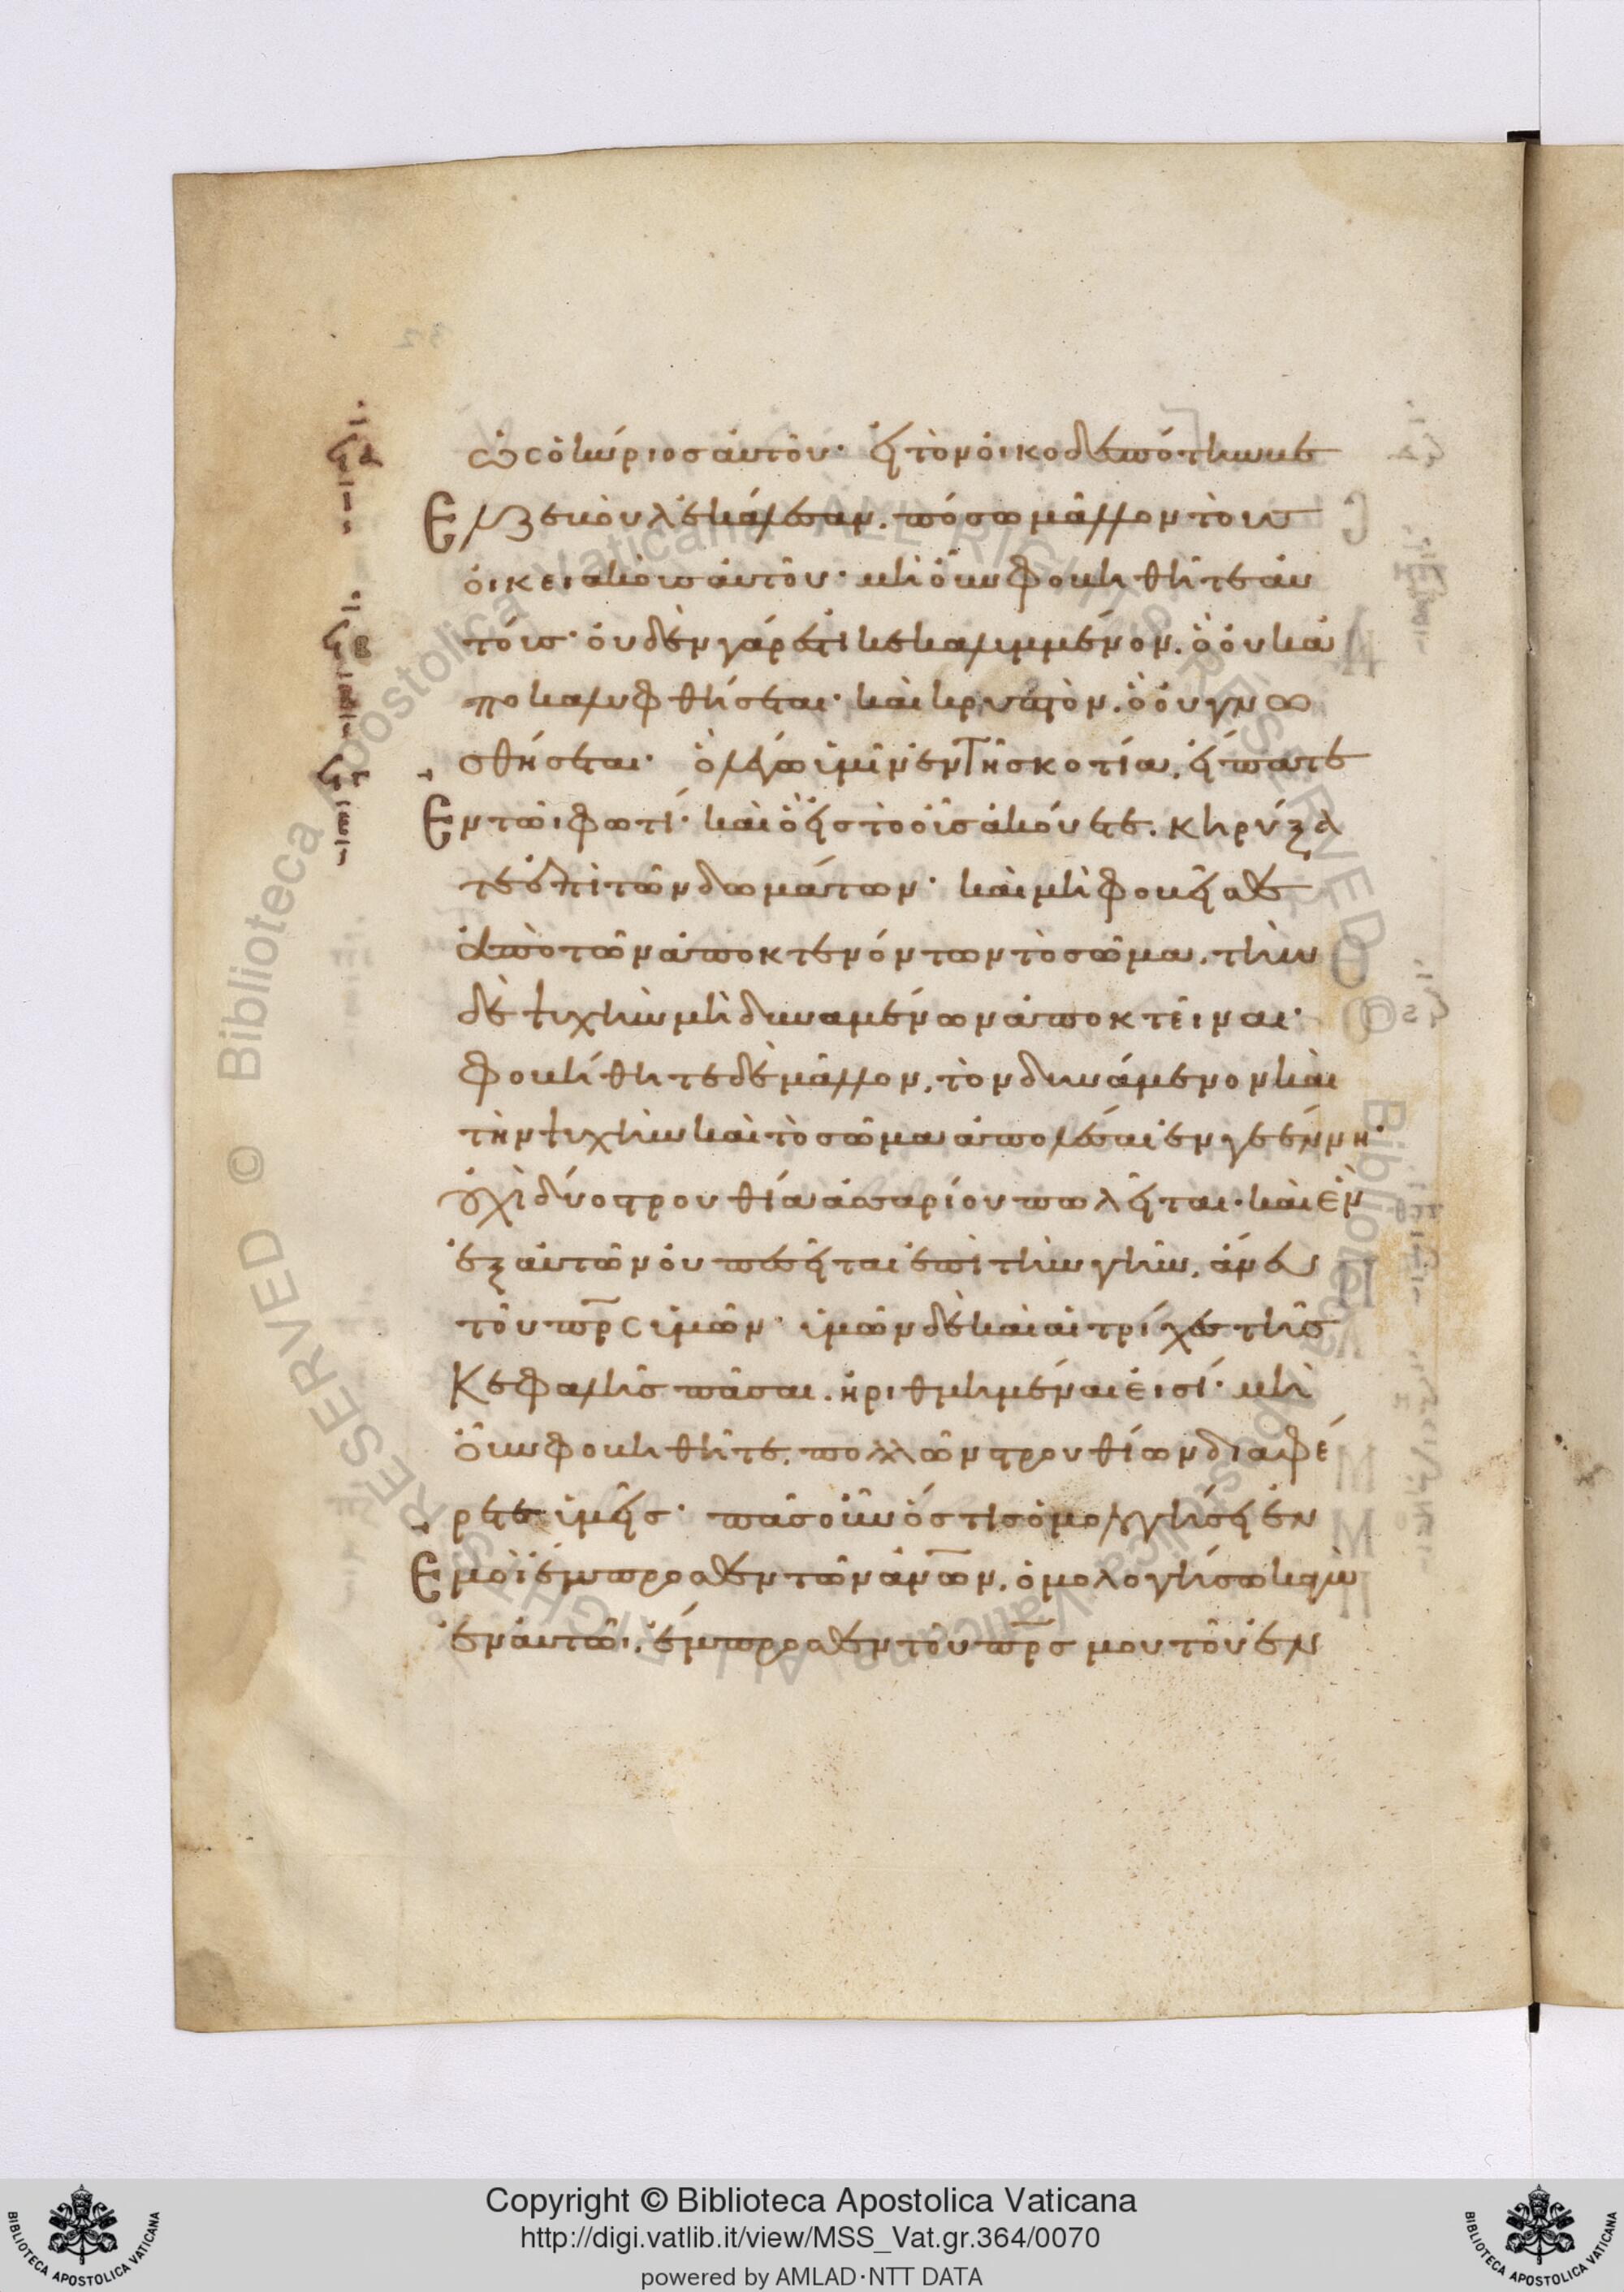 ὡς ὁ κύριος αὐτοῦ· εἰ τὸν οἰκοδεσπότην βε
ελζεβοὺλ ἐκάλεσαν. πόσω μᾶλλον τοὺς
οἰκειακοὺς αὐτοῦ· μὴ οὖν φοβηθῆτε αὐ
τούς· οὐδὲν γάρ ἐστι κεκαλυμμένον. ὃ οὐκ ἀ
ποκαλυφθήσεται· καὶ κρυπτὸν. ὃ οὐ γνω
σθήσεται· ὃ λέγω ὑμῖν ἐν τῆ σκοτία, εἴπατε
ἐν τῶι φωτί· καὶ ὃ εἰς τὸ οὖς ἀκούετε. κηρύξα
τε ἐπὶ τῶν δωμάτων· καὶ μὴ φοβεῖσθε
ἀπὸ τῶν ἀποκτενόντων τὸ σῶμα. τὴν
δὲ ψυχὴν μὴ δυναμένων ἀποκτεῖναι·
φοβήθητε δὲ μᾶλλον, τὸν δυνάμενον καὶ
τὴν ψυχὴν καὶ τὸ σῶμα ἀπολέσαι ἐν γεέννη·
οὐχὶ δύο στρουθία ἀσσαρίου πωλεῖται· καὶ ἓν
ἐξ αὐτῶν οὐ πεσεῖται ἐπὶ τὴν γῆν, ἄνευ
τοῦ πρς ὑμῶν· ὑμῶν δὲ καὶ αἱ τρίχες τῆς
κεφαλῆς πᾶσαι. ἠριθμημέναι εἰσί· μὴ
οὖν φοβηθῆτε. πολλῶν στρουθίων διαφέ
ρετε ὑμεῖς· πᾶς οὖν ὅστις ὁμολογήσει ἐν
ἐμοὶ ἔμπροσθεν τῶν ἀνων, ὁμολογήσω κἀγὼ
ἐν αὐτῶι. ἔμπροσθεν τοῦ πρς μου τοῦ ἐν
Copyright © Biblioteca Apostolica Vaticana
http://digi.vatlib.it/view/MSS_Vat.gr.364/0070
powered by AMLAD·NTT DATA